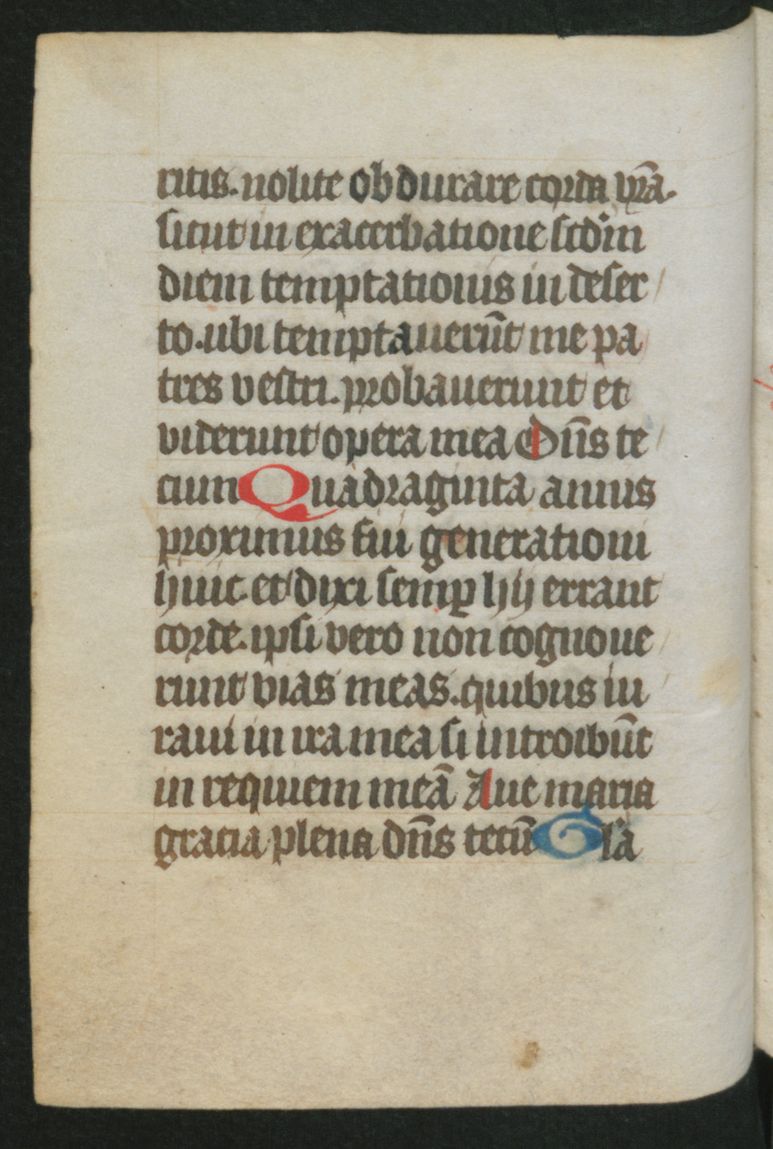 ritis. nolite obdurare corda vr̄a.
sicut in exacerbatione scd̓m
diem temptationis in deser
to. ubi temptauerūt me pa
tres vestri. probauerunt et
viderunt opera mea Dn̄s te
cum Quadraginta annis
proximus fui generationi
huic. et dixi semꝑ hij errant
corde. ipsi vero non cognoue
runt vias meas. quibus iu
raui in ira mea si introibūt
in requiem meā Aue maria
gracia plena dn̄s tecū Gl̄a